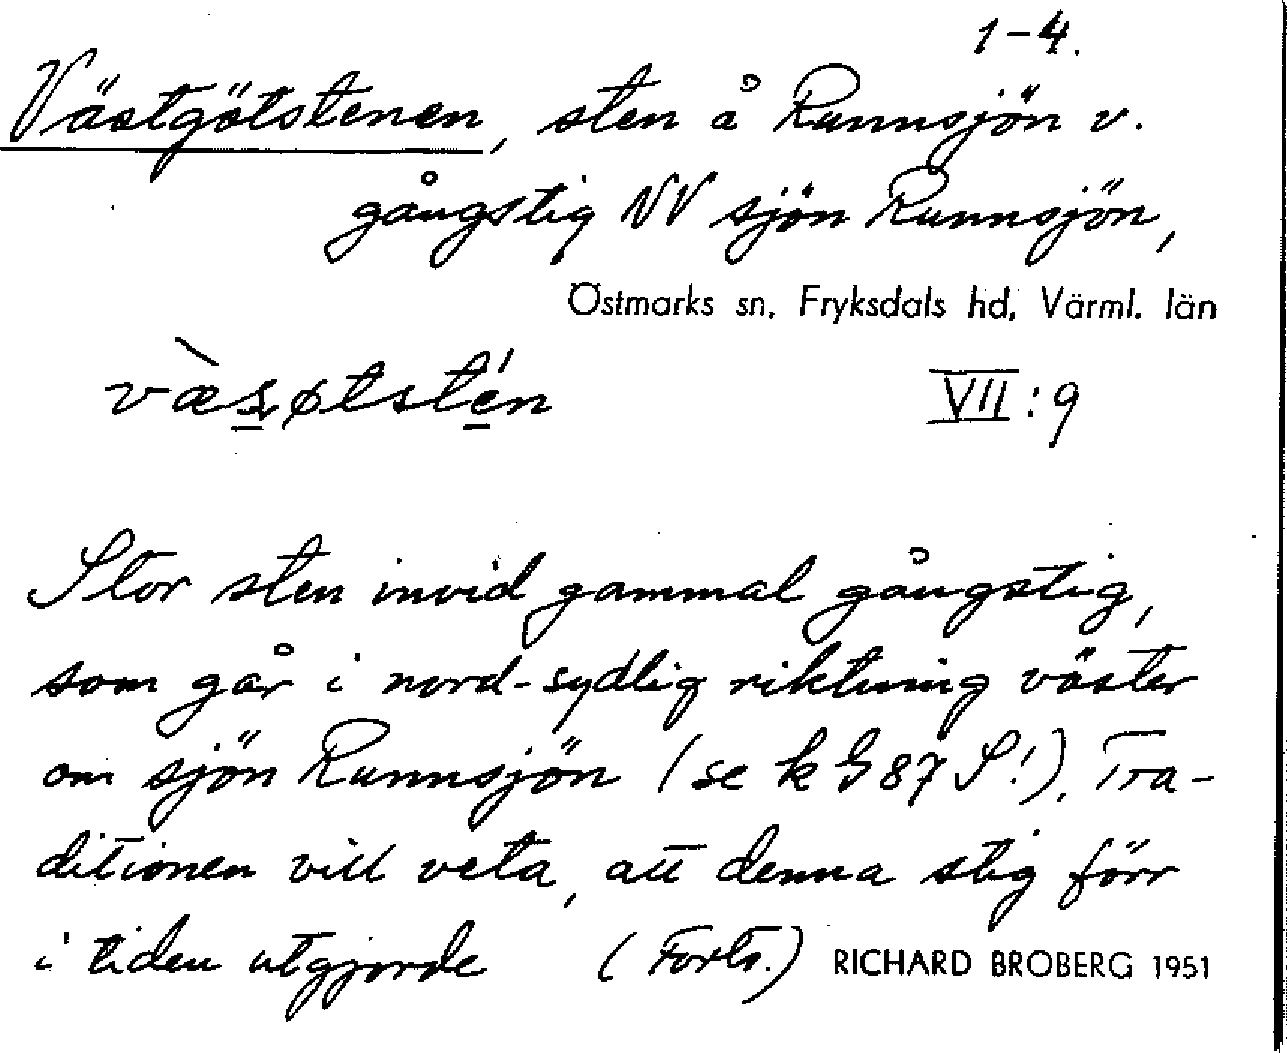 1-4.
Västgötstenen, sten å Runnsjön v.
gångstig NV sjön Runnsjön,
Östmarks sn, Fryksdals hd, Värml. län
VII:9
Stor sten invid gammal gångstig,
som går i nord-sydlig riktning väster
om sjön Runnsjön (se k G 87 S!). Tra-
ditionen vill veta, att denna stig förr
i tiden utgjorde (Forts.) RICHARD BROBERG 1951